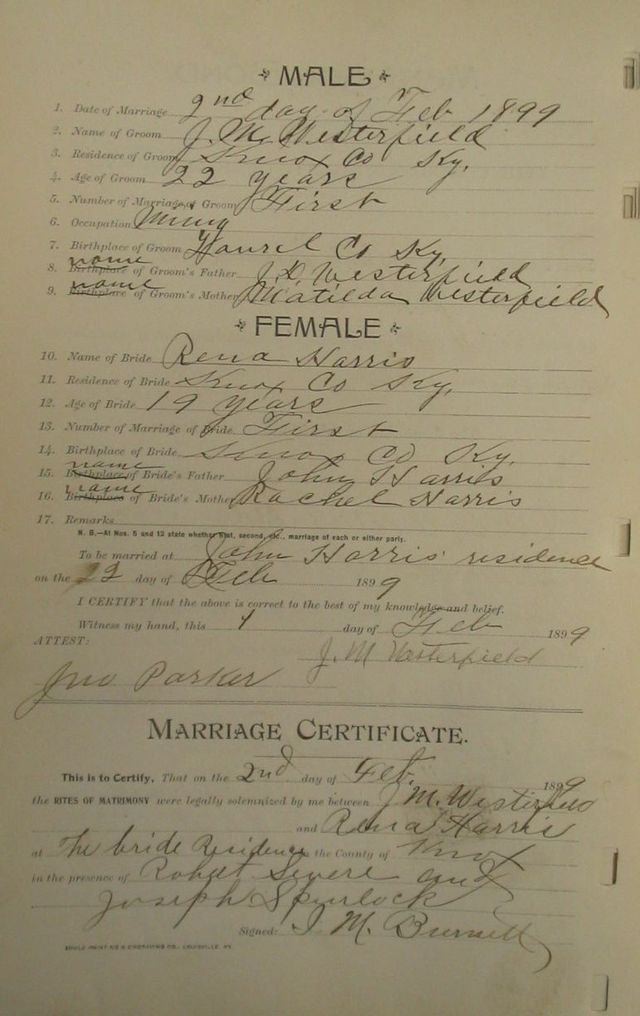 MALE
1. Date of Marriage 2nd day of Feb 1899
2. Name of Groom J. M. Westerfield
3. Residence of Groom Knox Co Ky.
4. Age of Groom 22 years
5. Number of Marriage of Groom First
6. Occupation
7. Birthplace of Groom Laurel Co Ky.
name
8. Birthplace of Groom's Father J. D. Westerfield
name
9. Birthplace of Groom's Mother Matilda Westerfield
FEMALE
10. Name of Bride Rena Harris
11. Residence of Bride Knox Co Ky.
12. Age of Bride 19 years
13. Number of Marriage of Bride First
14. Birthplace of Bride Knox Co Ky.
name
15. Birthplace of Bride's Father John Harris
name
16. Birthplace of Bride's Mother Rachel Harris
17. Remarks
N. B.—At Nos. 5 and 13 state whether first, second, etc., marriage of each or either party.
To be married at John Harris' residence
on the 22 day of Feb 1899
I CERTIFY that the above is correct to the best of my knowledge and belief.
Witness my hand, this 1 day of Feb 1899
ATTEST: J. M Westerfield
Jno Parker
MARRIAGE CERTIFICATE.
This is to Certify, That on the 2nd day of Feb. 1899
the RITES OF MATRIMONY were legally solemnized by me between J M. Westerfield
and Rena Harris
at The bride Residence in the County of Knox
in the presence of Robert and
Joseph Spurlock
Signed: J. M. Burnett